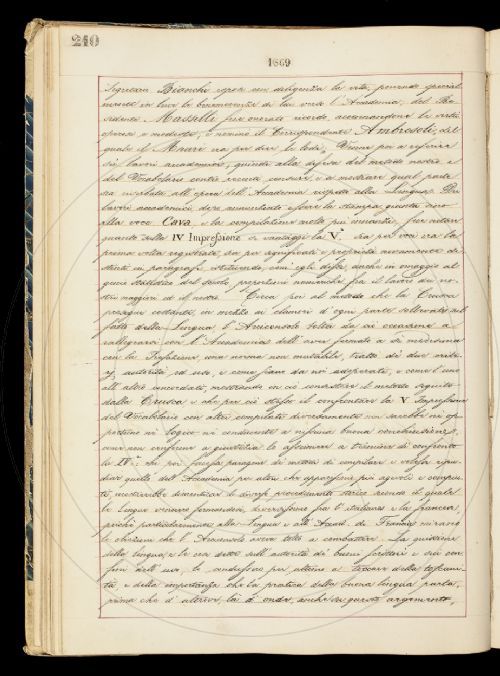 240
1869
Segretario Bianchi espose con diligenza la vita, ponendo special
mente in luce le benemerenze di lui verso l'Accademia; del Pre
sidente Masselli fece onorato ricordo, accennandone la vita
operosa e modesta; e nominò il Corrispondente Ambrosoli, del
quale il Mauri era per dire le lodi. Venne poi a riferire
sui lavori accademici, quindi alla difesa del metodo nostro e
del Vocabolario contro recenti censure, e a mostrare qual parte
sia riserbata all'opera dell'Accademia rispetto alla Lingua. Dei
lavori accademici dopo annunziato essere la stampa giunta sino
alla voce Cava, e la compilazione molto più innanzi, fece notare
quanto sulla IV Impressione si vantaggi la V.ª sia per voci ora la
prima volta registrate, sia per significati e proprietà
stinte in paragrafi
alla Statistica del secolo proporzioni numeriche fra il lavoro dei no
stri maggiori ed il nostro. Circa poi al metodo che la Crusca
prosegue costante, in mezzo ai clamori d'ogni parte sollevati sul
fatto della Lingua, l'Arciconsolo tolse da ciò occasione a
rallegrarsi con l'Accademia dell'aver formato a sè medesima
con la Prefazione una norma non mutabile, tratta di due criteri
autorità ed uso, e come siano da noi adoperati, e come l'uno
all'altro concordato, mostrando in ciò consistere il metodo seguito
dalla Crusca e che per ciò stesso il confrontare la V Impressione
del Vocabolario con altri compilati diversamente non sarebbe nè op
portuno nè logico nè conducente a nessuna buona conclusione,
come non conforme a giustizia lo assumere a termine di confronto
la IV.ª Chi poi faccia paragone di metodi di compilare e voglia ripu
diare quello dell'Accademia per altri che apparissero più agevoli e compiu
ti, mostrerebbe dimenticare le diverse provenienze secondo il quale
le lingue vennero formandosi, diversissime fra l'italiana e la francese,
poichè particolarmente alla lingua e all'Accad. di Francia miravano
le obiezioni che l'Arciconsolo aveva tolto a combattere. La quistione
della Lingua, e le cose dette sull'autorità de' buoni scrittori e sui con
fini dell'uso, lo condussero per ultimo a toccare della toscani
tà e della importanza che la pratica della buona lingua parlata,
prima che d'altrove, là d'onde, anche da questo argomento,